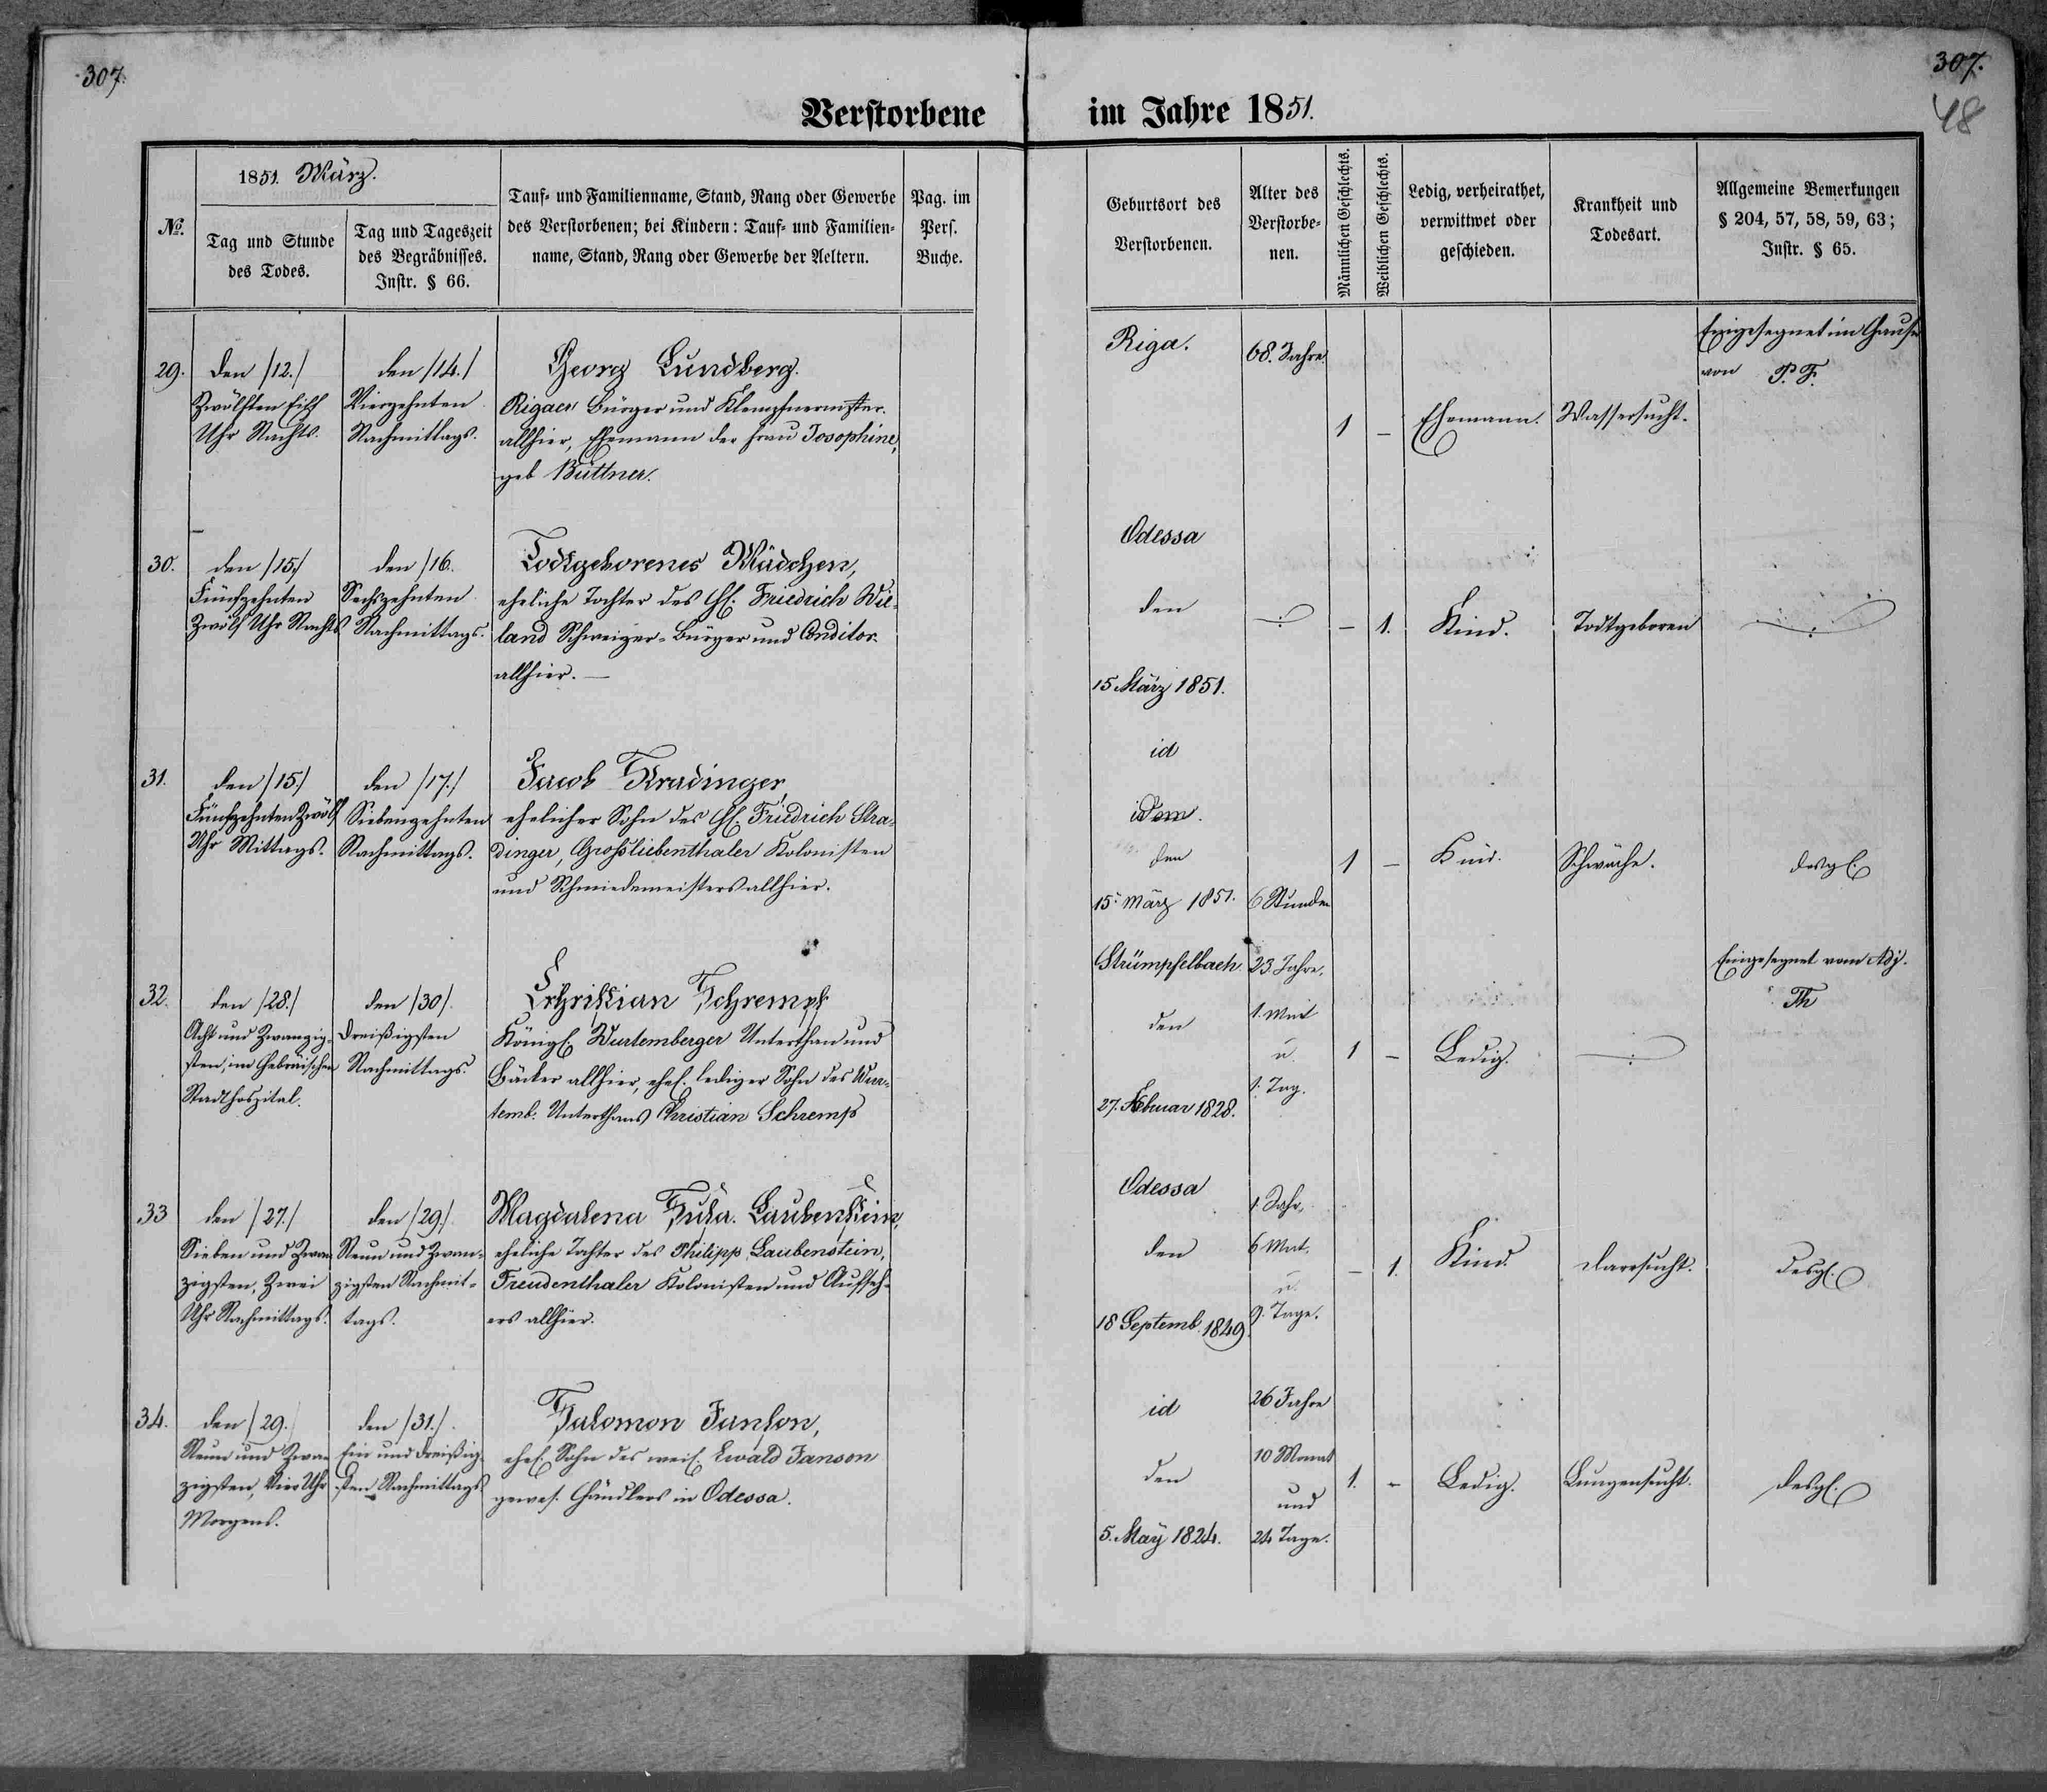 307.
307.
48
Verstorbene im Jahre 1851.
№.
1851. März.
Tag und Stunde
des Todes.
Tag und Tageszeit
des Begräbnisses.
Instr. § 66.
Tauf- und Familienname, Stand, Rang oder Gewerbe
des Verstorbenen; bei Kindern: Tauf- und Familien-
name, Stand, Rang oder Gewerbe der Aeltern.
Pag. im
Pers.
Buche.
Geburtsort des
Verstorbenen.
Alter des
Verstorbe-
nen.
Männlichen Geschlechts.
Weiblichen Geschlechts.
Ledig, verheirathet,
verwittwet oder
geschieden.
Krankheit und
Todesart.
Allgemeine Bemerkungen
§ 204, 57, 58, 59, 63;
Instr. § 65.
29.
den /12./
Zwölften Eilf
Uhr Nachts.
den /14./
Vierzehnten
Nachmittags.
Georg Lundberg.
Rigaer Bürger und Klempnermster.
allhier, Ehemann der Frau Josophine,
geb Büttner.
Riga.
68. Jahre.
1
–
Ehemann.
Wassersucht.
Eingesegnet im Hause
von P. F.
30.
den /15/
Fünfzehnten
Zwölf Uhr Nachts
den /16.
Sechszehnten
Nachmittags.
Todtgeborenes Mädchen,
eheliche Tochter des H. Friedrich Wie-
land Schweizer-Bürger und Conditor.
allhier. —
Odessa
den
15 März 1851.
–
1.
Kind.
Todtgeboren
31.
den /15./
Fünfzehnten Zwölf
Uhr Mittags.
den /17./
Siebenzehnten
Nachmittags.
Jacob Stradinger,
ehelicher Sohn des H. Friedrich Stra-
dinger, Grossliebenthaler Kolonisten
und Schmiedemeisters allhier.
id
idem.
den
15. März 1851.
6 Stunden
1
–
Kind.
Schwäche.
desgl.
32.
den /28./
Acht und Zwanzig-
sten, im Hebräischen
Stadthospital.
den /30/.
Dreißigsten
Nachmittags.
Christian Schrempf
Königl. Wurtemberger Unterthan und
Bäcker allhier, ehel. lediger Sohn des Wur-
temb. Unterthans Christian Schremp
Strümpfelbach
den
27. Februar 1828.
23 Jahre,
1. Mnt
u.
1. Tag.
1
–
Ledig.
Eingesegnet vom Adj.
Th
33
den /27./
Sieben und Zwan
zigsten, Zwei
Uhr Nachmittags.
den /29./
Neun und Zwan-
zigsten Nachmit-
tags.
Magdalena Jula. Laubenstein,
eheliche Tochter des Philipp Laubenstein,
Freudenthaler Kolonisten und Aufseh-
ers allhier.
Odessa
den
18 Septemb. 1849.
1. Jahr,
6 Mnt.
u.
9. Tage.
–
1.
Kind.
Darrsucht.
desgl.
34.
den /29./
Neun und Zwan
zigsten, Vier Uhr
Morgens.
den /31./.
Ein und dreißig-
sten Nachmittags
Salomon Janson,
ehel. Sohn des weil. Ewald Janson
gewes. Händlers in Odessa.
id
den
5. Maÿ 1824.
26 Jahre
10 Monat
und
24 Tage.
1.
-
Ledig.
Lungensucht.
desgl.